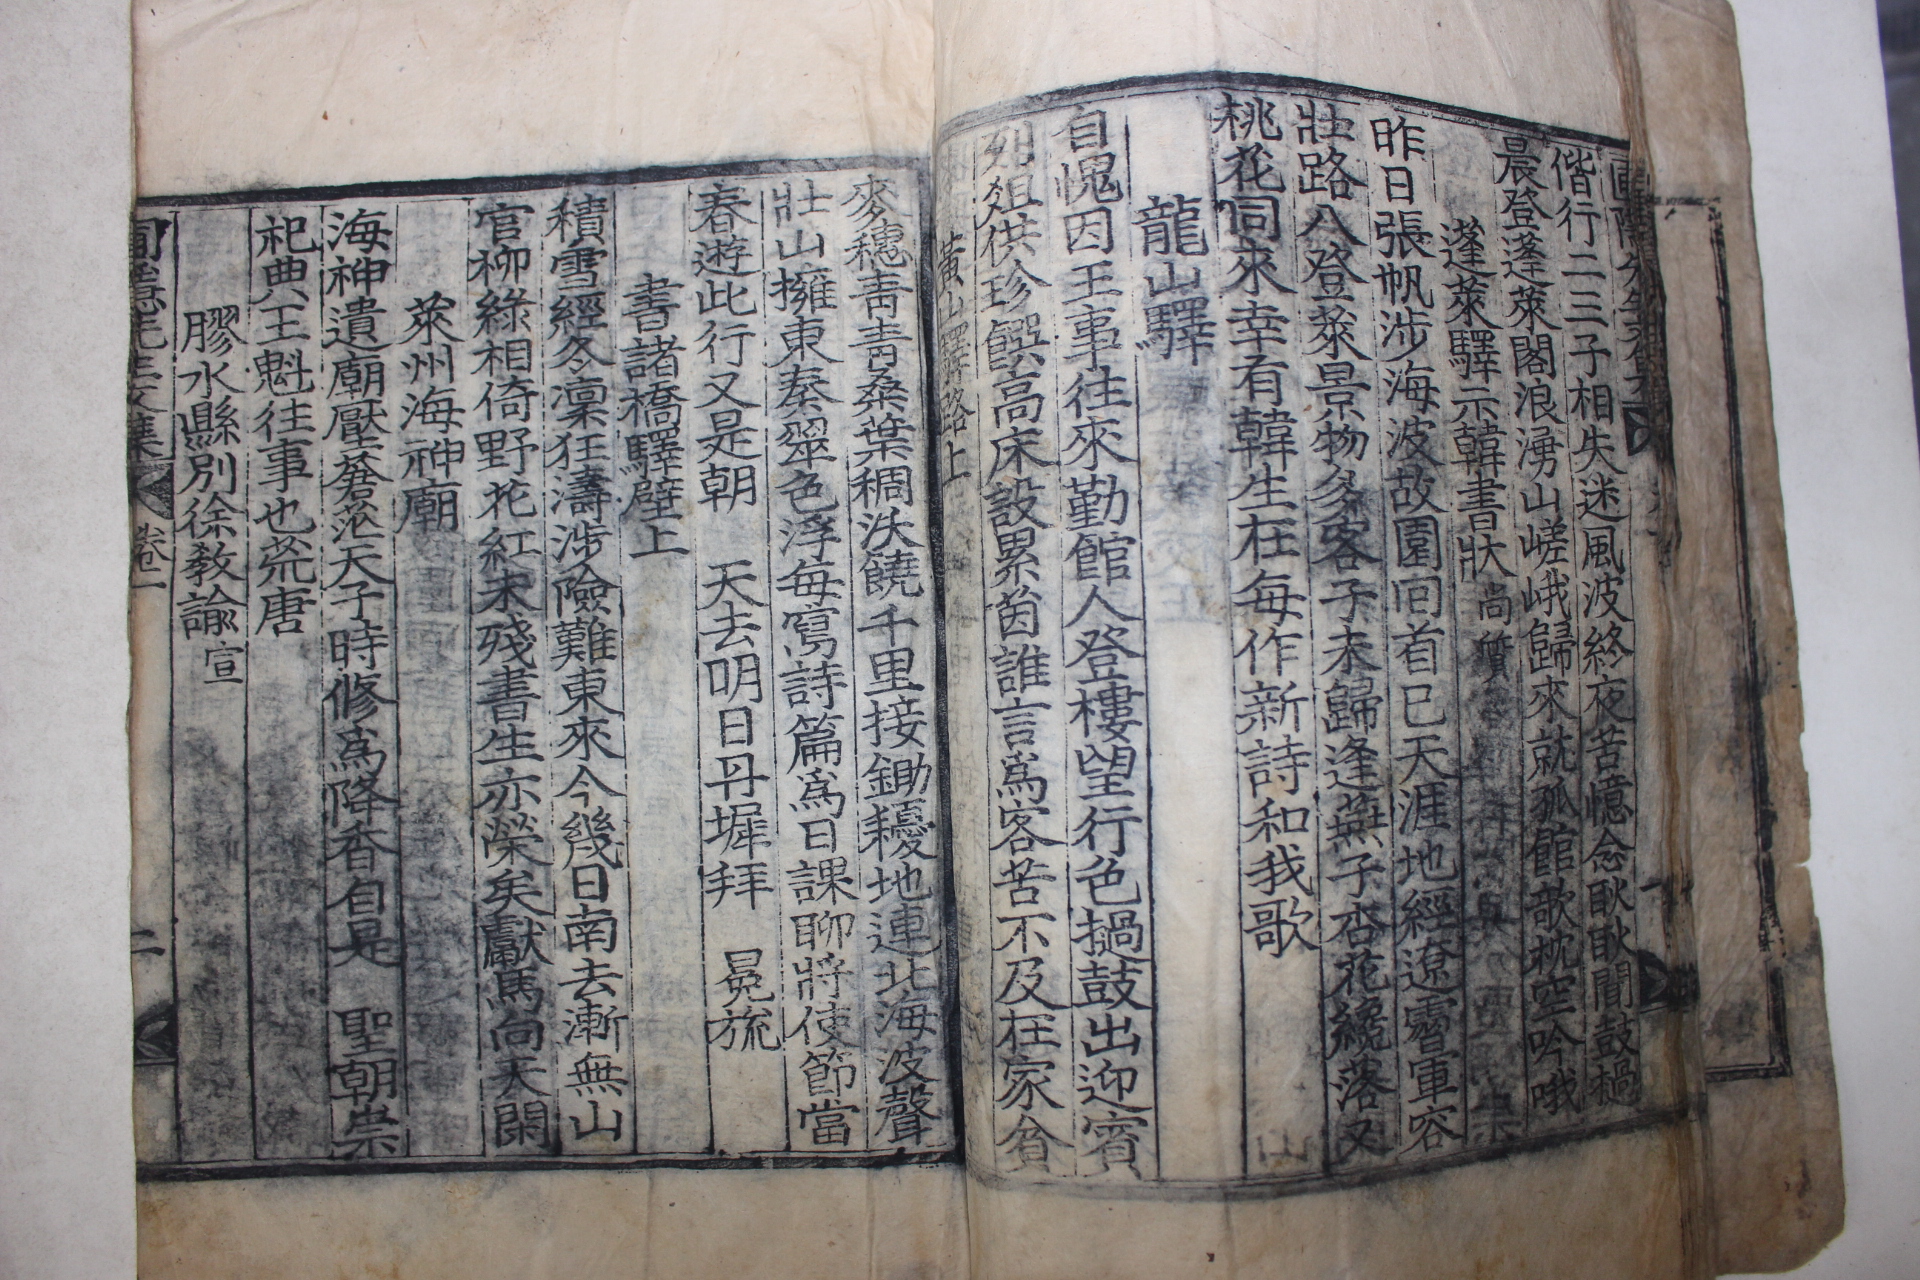 偕行二三子相失迷風波終夜苦憶念耿耿聞鼓撾
晨登蓬萊閣浪湧山嵯峨歸來就孤館欹枕空吟哦
蓬萊驛示韓書狀尚質
昨日張帆涉海波故園回首已天涯地經遼霫軍容
壯路入登萊景物多客子未歸逢燕子杏花纔落又
桃花同來幸有韓生在每作新詩和我歌
龍山驛
自愧因王事往來勤館人登樓望行色撾鼓出迎賓
列俎供珍饌高床設累茵誰言爲客苦不及在家貧
黃山驛路上
麥穗靑靑桑葉稠沃饒千里接鋤耰地連北海波聲
壯山擁東秦翠色浮每寫詩篇爲日課聊將使節當
春遊此行又是朝 天去明日丹墀拜 冕旒
書諸橋驛壁上
積雪經冬凜狂濤涉險難東來今幾日南去漸無山
官柳綠相倚野花紅未殘書生亦榮矣獻馬向天閑
萊州海神廟
海神遺廟壓蒼茫天子時修爲降香自是 聖朝崇
祀典八王魁往事也荒唐
膠水縣別徐教諭宣
圃隱先生文集 卷一 二